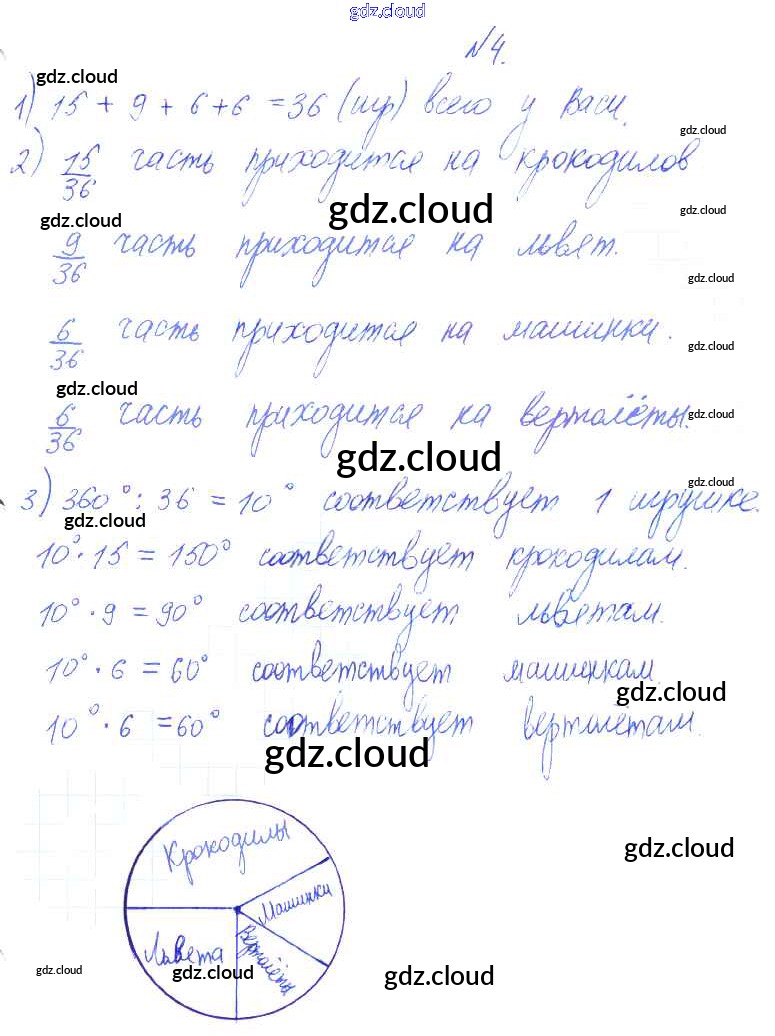 gdz.cloud
№4.
gdz.cloud
1) 15 + 9 + 6 + 6 = 36 (игр) всего у Васи.
gdz.cloud
2) 15/36 часть приходится на крокодилов
gdz.cloud gdz.cloud gdz.cloud
9/36 часть приходится на львят.
gdz.cloud
6/36 часть приходится на машинки.
gdz.cloud
gdz.cloud
6/36 часть приходится на вертолёты.
gdz.cloud
gdz.cloud
gdz.cloud
3) 360° : 36 = 10° соответствует 1 игрушке.
gdz.cloud
10° · 15 = 150° соответствует крокодилам.
10° · 9 = 90° соответствует львётам.
10° · 6 = 60° соответствует машинкам.
gdz.cloud
10° · 6 = 60° соответствует вертолётам.
gdz.cloud
Крокодилы
gdz.cloud
Машинки
Львета
Вертолёты
gdz.cloud gdz.cloud gdz.cloud